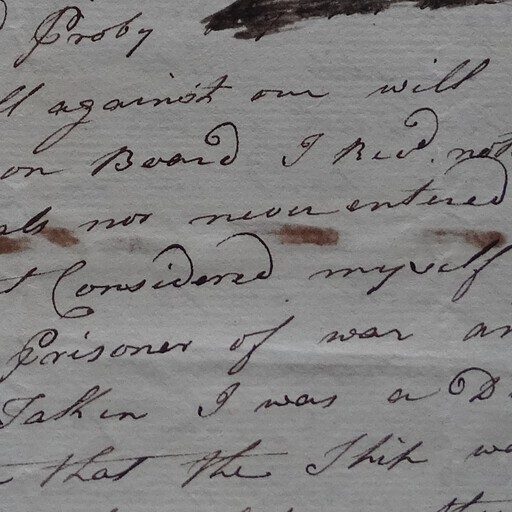 Proby
ll against our will
on Board I Recd. not
nor never entered
t Considered myself
Prisoner of war an
Taken I was a D
that the Ship wa